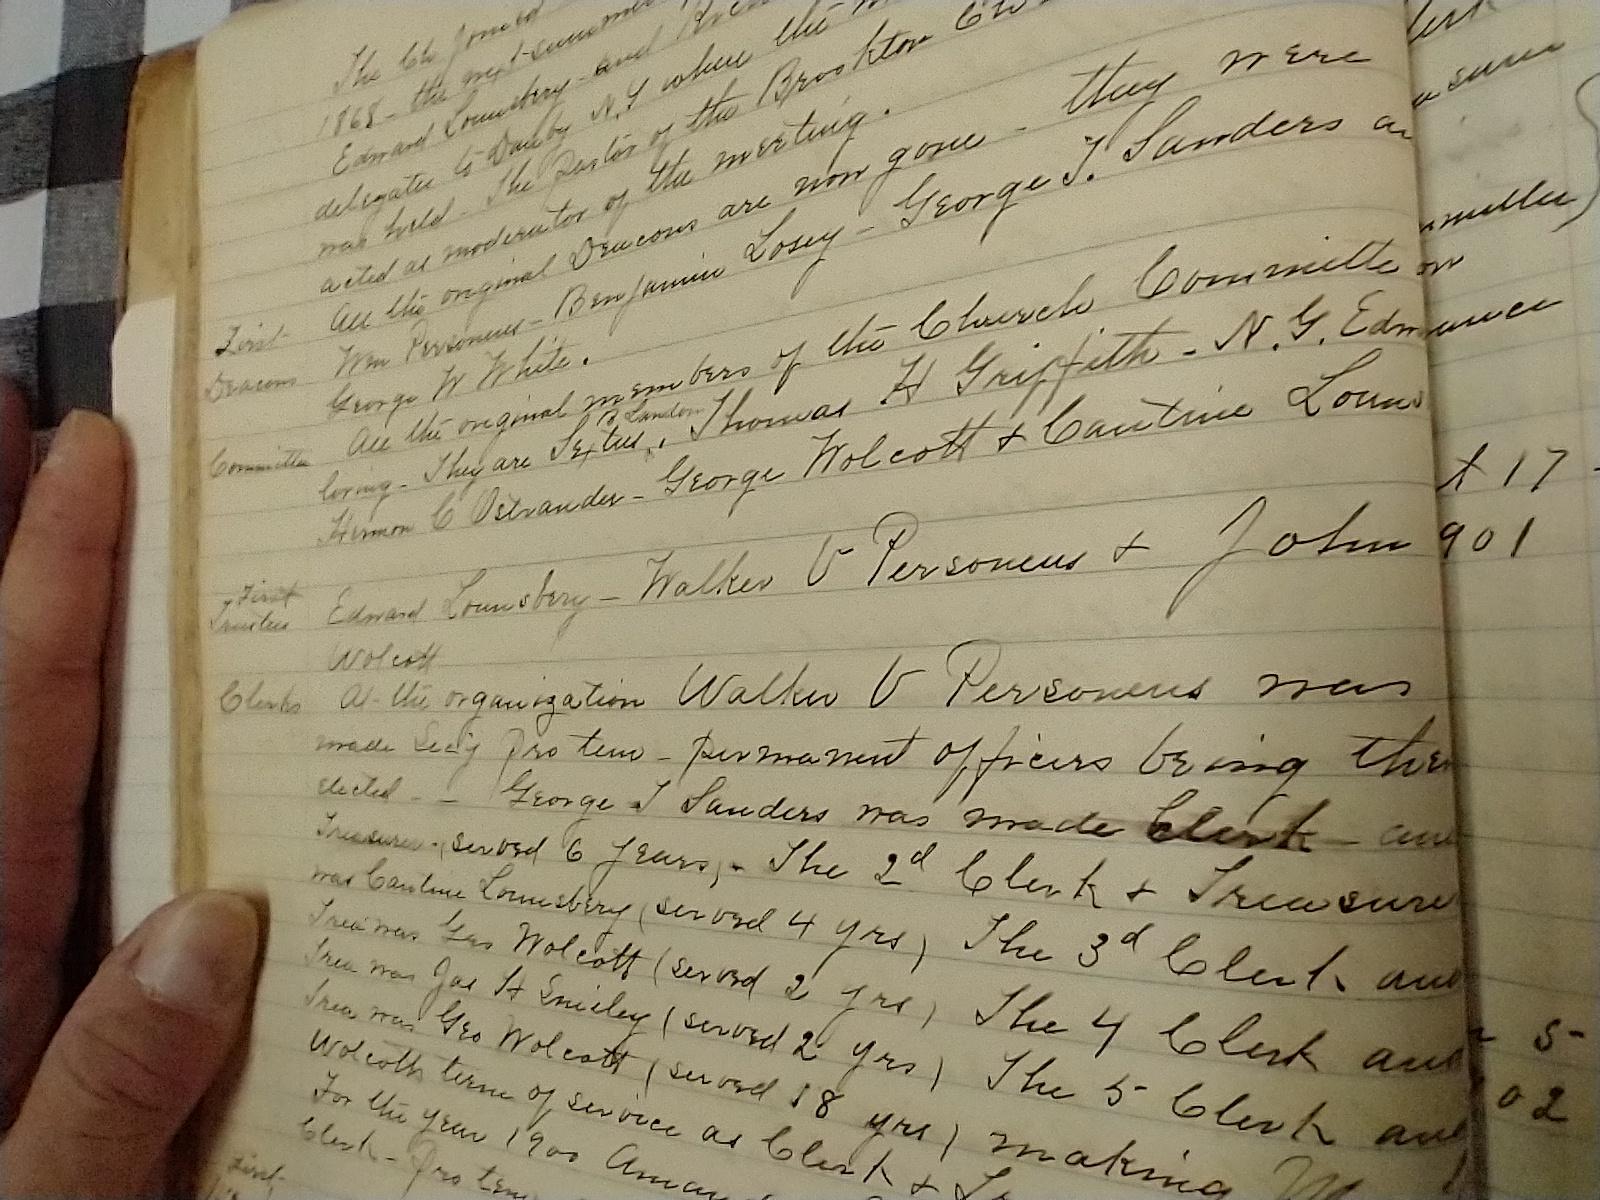 The Ch joined
1868 - the next summer
Edward Lounsbery - and
delegates to Danby N.Y where the
was held - The Pastor of the Brockton
acted as moderator of the meeting.
First Deacons
All the original Deacons are now gone - they were
Wm Personeus - Benjamin Losey - George T. Sanders
George W White.
Committee
All the original members of the Church Committe
living - They are Sextus B Landon, Thomas H Griffith - N. G.
Hermon C Ostrander - George Wolcott & Cantine
First Trustees
Edward Lounsbery - Walker V Personeus & John
Wolcott
Clerks
At the organization Walker V Personeus was
made Sec'y pro tem - permanent officers being
elected - - George T Sanders was made Clerk -
Treasurer - (served 6 years) - The 2d Clerk & Treasure
was Cantine Lounsbery (served 4 yrs) The 3d Clerk and
Trea was Geo Wolcott (served 2 yrs) The 4 Clerk and
Trea was Jas H Smiley (served 2 yrs) The 5 Clerk and
Trea was Geo Wolcott (served 18 yrs) making
Wolcotts term of service as Clerk &
For the year 1900
Clerk - Pro tem
First
17
901
5-
02